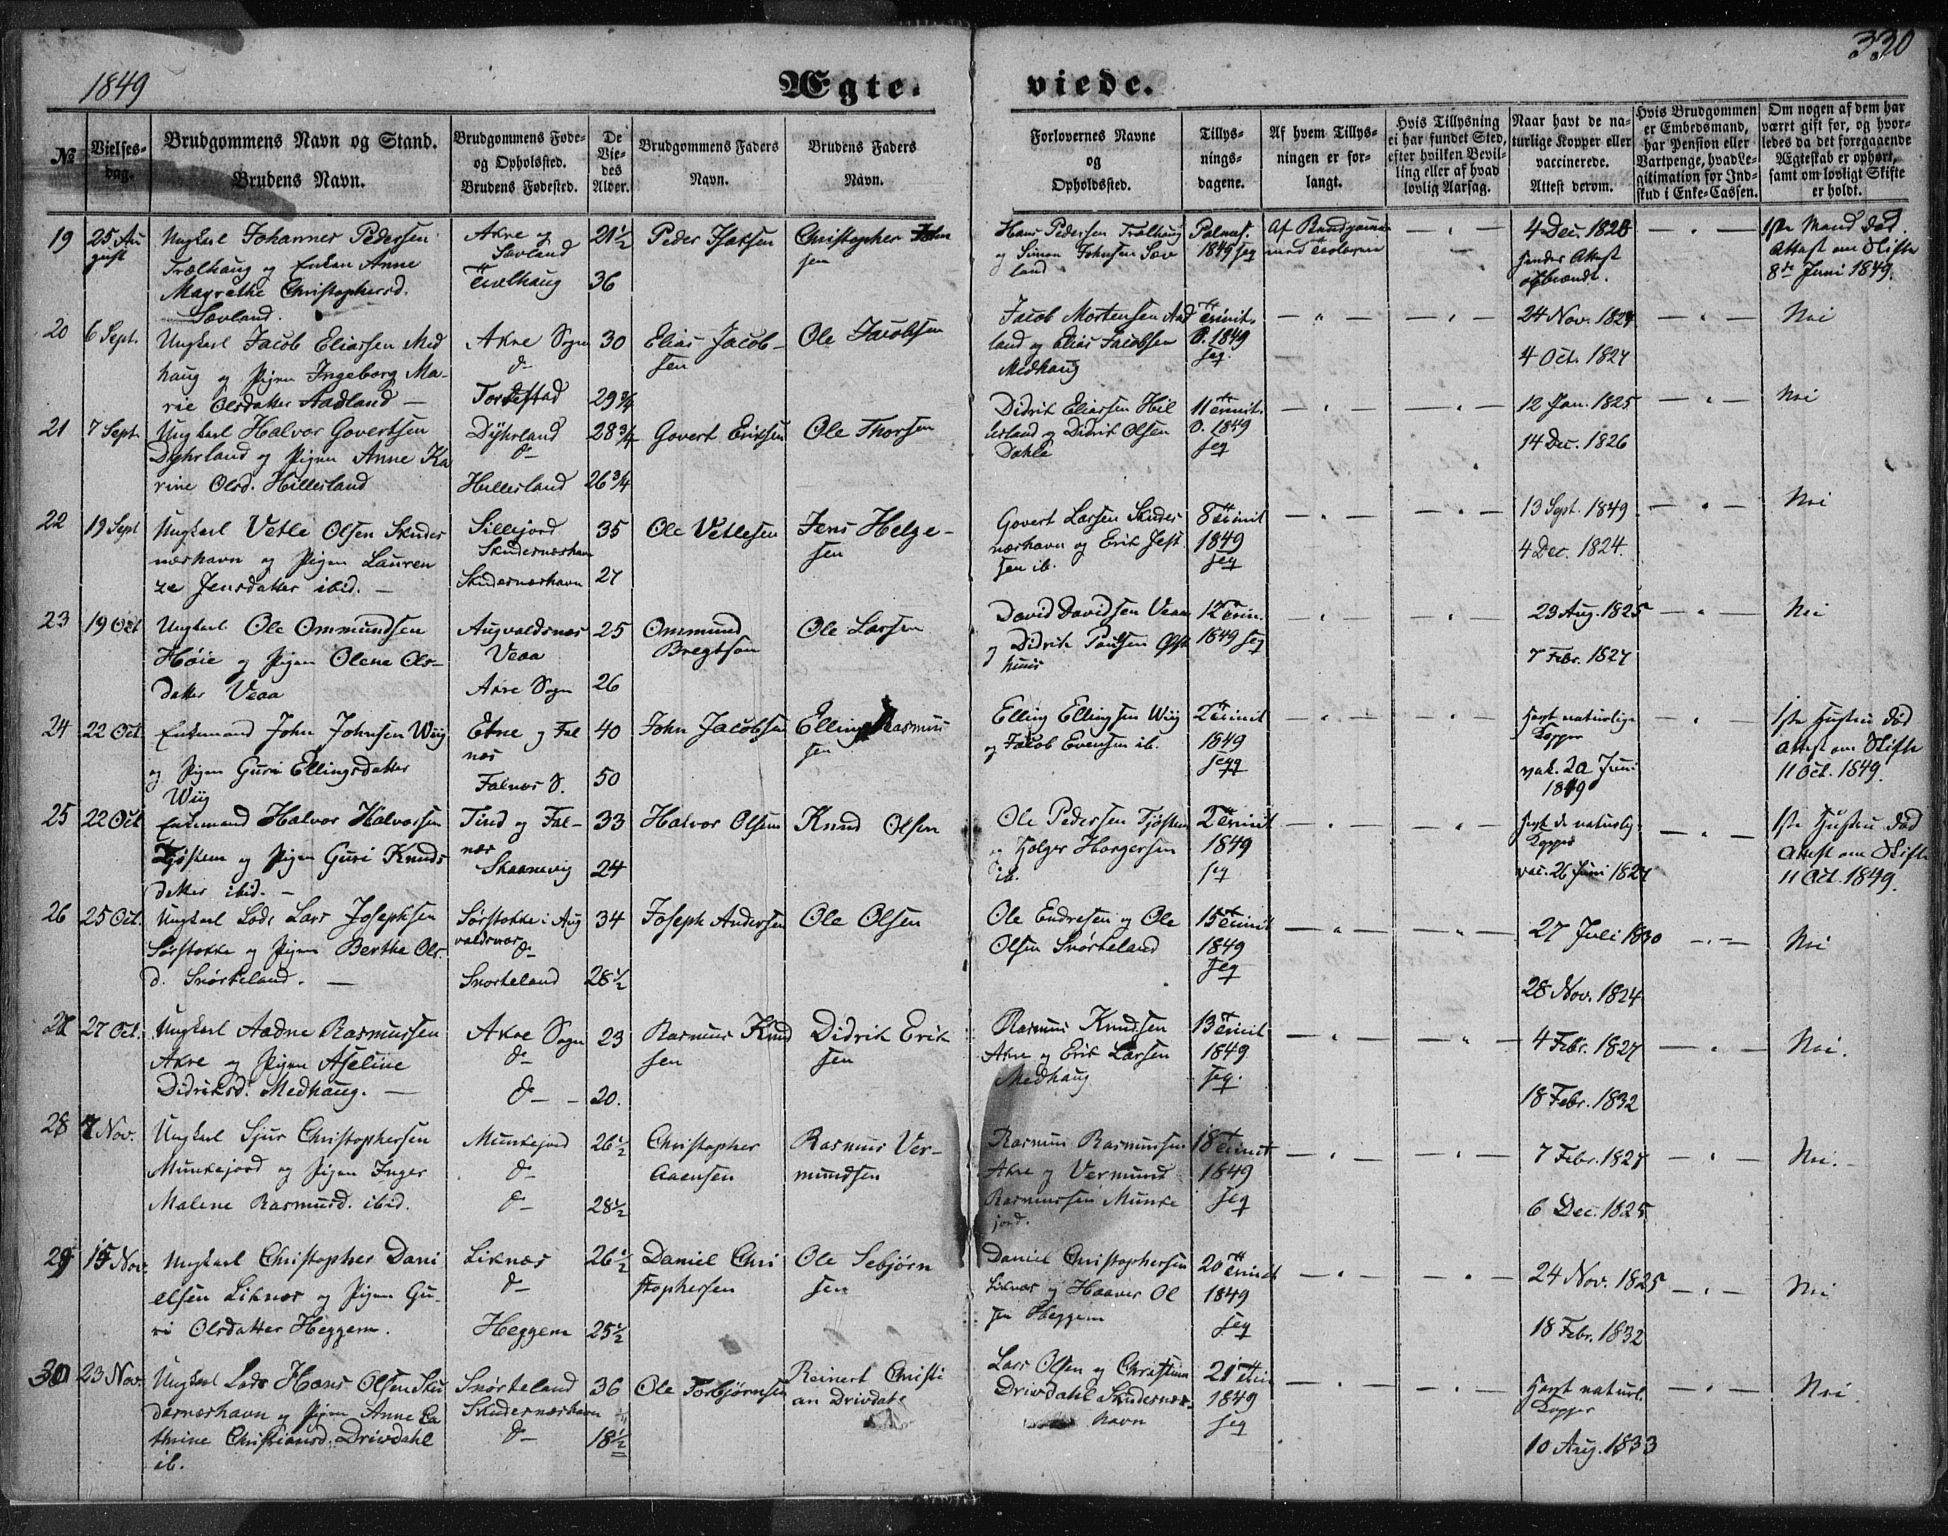 1849
330
Ægte-
viede.
№
Vielses-
dag.
Brudgommens Navn og Stand.
Brudens Navn.
Brudgommens Føde-
og Opholdsted.
Brudens Fødested.
De
Vie-
des
Alder.
Brudgommens Faders
Navn.
Brudens Faders
Navn.
Forlovernes Navne
og
Opholdsted.
Tillys-
nings-
dagene.
Af hvem Tillys-
ningen er for-
langt.
Hvis Tillysning
ei har fundet Sted,
efter hvilken Bevil-
ling eller af hvad
lovlig Aarsag.
Naar havt de na-
turlige Kopper eller
vaccinerede.
Attest derom.
Hvis Brudgommen
er Embedsmand,
har Pension eller
Vartpenge, hvad Le-
gitimation for Ind-
skud i Enke-Cassen.
Om nogen af dem har
været gift før, og hvor-
ledes da det foregaaende
Ægteskab er ophørt,
samt om lovligt Skifte
er holdt.
19
25 Au
gust
Ungkarl Johannes Pedersen
Trælhaug og Enken Anne
Magrethe Christophersd.
Sævland.
Akre og
Sævland
Trælhaug
21½
36
Peder Isaksen
Christopher John
sen
Hans Pedersen Trælhaug
og Simon Johnsen Sæv
land
1849 seq
Af Brudgommen
4 Dec. 1828
hendes Attest
opbrændt.
1ste Mand død
Attest om Skifte
8de Juni 1849.
20
6 Sept.
Ungkarl Jacob Eliassen Med
haug og Pigen Ingeborg Ma-
rie Olsdatter Aadland —
Akre Sogn
do
Tordestad
30
29¾
Elias Jacob-
sen
Ole Jacobsen
Jacob Mortensen Aad
land og Elias Jacobsen
Medhaug
Trinit.
D. 1849
seq.
24 Nov. 1824
4 Oct. 1827
Nei
21
7 Sept.
Ungkarl Halvor Govertsen
Dyhrland og Pigen Anne Ka
rine Olsd. Hillesland
Dyhrland
do
Hillesland
28¾
26¾
Govert Eriksen
Ole Thorsen
Didrik Eliassen Hil
lesland og Didrik Olsen
Dahle
11 Trinit.
D. 1849
seq
12 Jan. 1825
14 Dec. 1826
Nei
22
19 Sept
Ungkarl Vetle Olsen Skudes
næshavn og Pigen Lauren
ze Jensdatter ibid. —
Sillejord
Skudesnæshavn
Skudesnæshavn
35
27
Ole Vetlesen
Jens Helge-
sen
Govert Larsen Skudes
næshavn og Erik Jest
sen ib.
8 Trinit
1849
seq
13 Sept. 1849
4 Dec. 1824.
Nei
23
19 Oct
Ungkarl Ole Ommundsen
Høie og Pigen Olene Ols-
datter Veaa
Augvaldsnæs
Veaa
Akre Sogn
25
26
Ommund
Bregtson
Ole Larsen
David Davidsen Veaa
og Didrik Paulsen Øst
huus
12 Trin.
1849 seq
23 Aug. 1825
7 Febr. 1827
Nei
24
22 Oct
Enkemand John Johnsen Wiig
og Pigen Guri Ellingsdatter
Wiig
Etne og Fal
næs
Falnæs S.
40
50
John Jacobsen
Elling Rasmus
sen
Elling Ellingsen Wiig
og Jacob Evensen ib.
2 Trinit
1849
seqq
havt naturlige
Kopper
vac. 20 Juni
1849
1ste Hustru død
Attest om Skifte
11 Oct. 1849.
25
22 Oct
Enkemand Halvor Halvorsen
Tjøstem og Pigen Guri Knuds
datter ibid. —
Tind og Fal-
næs
Skaanevig
33
24
Halvor Olsen
Knud Olsen
Ole Pedersen Tjøstem
ib.
2 Trinit
1849
seq
havt de naturlig
Kopper
vac. 26 Juni 1827
1ste Hustru død
Attest om Skifte
11 Oct. 1849.
26
25 Oct.
Ungkarl Lods Lars Josephsen
Sørstokke og Pigen Berthe Ols-
d. Snørteland. —
Sørstokke i Aug
valdsnæs
do
Snørteland
34
28½
Joseph Andersen
Ole Olsen
Ole Endresen og Ole
Olsen Snørteland
15 Trinit
1849
seq
27 Juli 1830
28 Nov. 1824
Nei
27
27 Oct.
Ungkarl Aadne Rasmussen
Akre og Pigen Aseline
Didriksd. Medhaug. —
Akre Sogn
do
do
23
20.
Rasmus Knud
sen
Didrik Erik
sen
Rasmus Knudsen
Akre og Erik Larsen
Medhaug
13 Trinit
1849
seq.
4 Febr. 1827
18 Febr. 1832
Nei.
28
7 Nov.
Ungkarl Sjur Christophersen
Munkejord og Pigen Inger
Malene Rasmusd. ibid.
Munkejord
do
do
26½
28½
Christopher
Aaensen
Rasmus Ver-
mundsen
Rasmus Rasmussen
Akre og Vermund
Rasmussen Munke
jord.
18 Trinit
1849
seq
7 Febr. 1827
6 Dec. 1825
Nei.
29
15 Nov.
Ungkarl Christopher Dani
elsen Liknæs og Pigen Gu-
ri Olsdatter Heggem.
Liknæs
do
Heggem
26½
25½
Daniel Chri
stophersen
Ole Sebjørn
sen
Daniel Christophersen
Liknæs og Haaver Ol
sen Heggem
20 Trinit
1849
seq
24 Nov. 1825
18 Febr. 1832
Nei
30
23 Nov.
Ungkarl Lods Hans Olsen Sku
desnæshavn og Pigen Anne Ca
thrine Christiansd. Drivdahl
ib.
Snørteland
Skudesnæshavn
do
36
18½
Ole Torbjørnsen
Reinert Christi
an Drivdahl
Lars Olsen og Christian
Drivdahl Skudesnæs-
havn
21 Trin
1849
seq
havt naturl.
Kopper
10 Aug. 1833
Nei